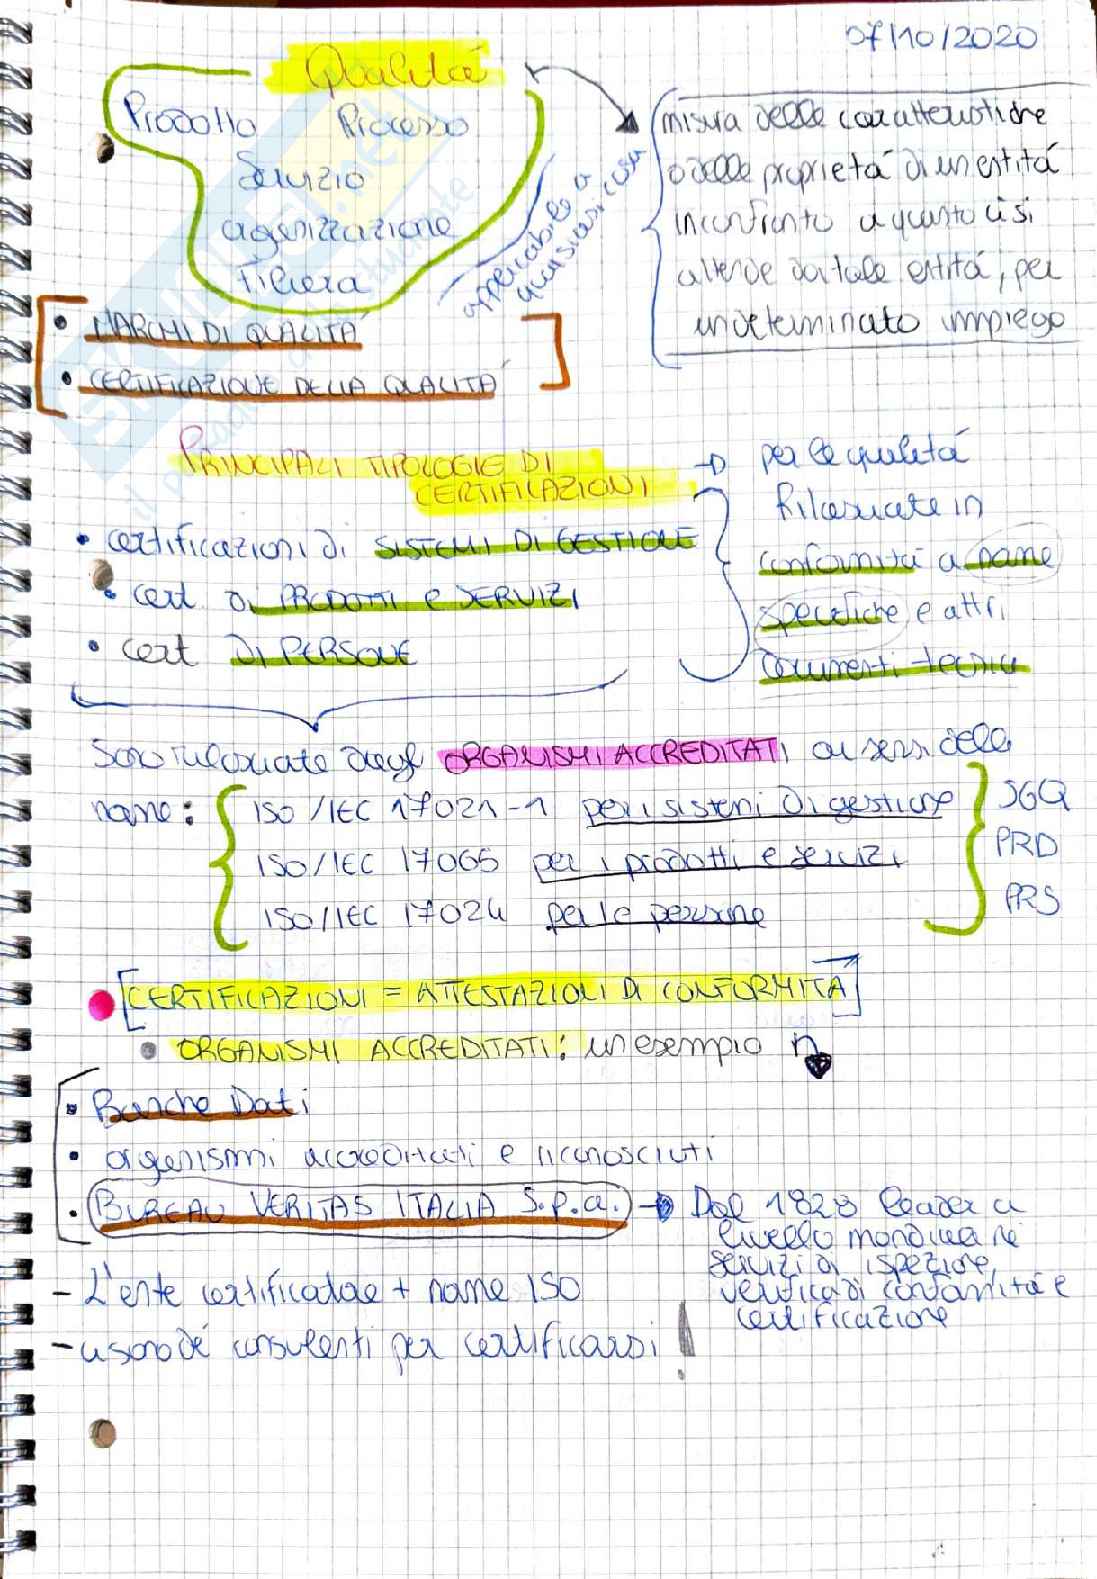 07/10/2020
Qualitá
Prodotto Processo
Servizio
organizzazione
Filiera
applicabile a
qualsiasi cosa
misura delle caratteristiche
o delle proprietá di un entitá
in confronto a quanto ci si
attende da tale entitá, per
un determinato impiego
• MARCHI DI QUALITÁ
• CERTIFICAZIONE DELLA QUALITÁ
PRINCIPALI TIPOLOGIE DI
CERTIFICAZIONI
per le qualitá
Rilasciate in
conformitá a norme
specifiche e altri
documenti tecnici
• certificazioni di SISTEMI DI GESTIONE
• cert di PRODOTTI e SERVIZI
• cert DI PERSONE
Sono rilasciate dagli ORGANISMI ACCREDITATI ai sensi della
norme:
ISO/IEC 17021-1 per i sistemi di gestione SGQ
ISO/IEC 17065 per i prodotti e servizi PRD
ISO/IEC 17024 per le persone PRS
CERTIFICAZIONI = ATTESTAZIONI DI CONFORMITÁ
• ORGANISMI ACCREDITATI: un esempio
• Banche Dati
• organismi accreditati e riconosciuti
• BUREAU VERITAS ITALIA S.p.a. → Dal 1828 leader a
livello mondiale nei
servizi di ispezione,
verifica di conformitá e
certificazione
- L'ente certificatore + norme ISO
- usano dé consulenti per certificarsi!